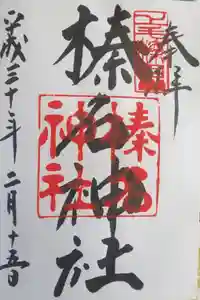 奉拝
榛名神社
平成三十年 二月十五日
榛名
神社